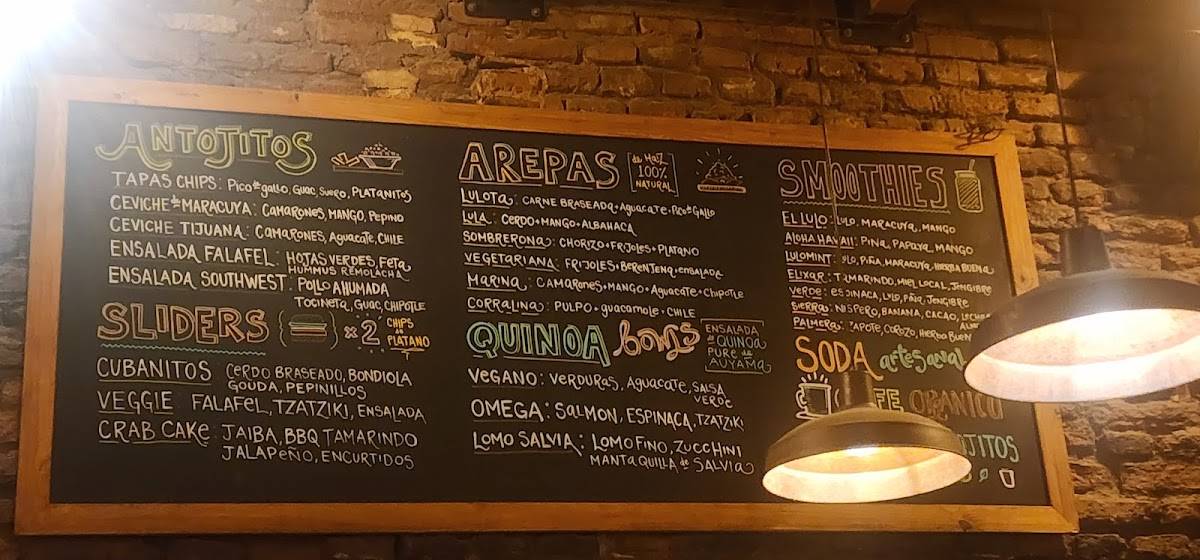 ANTOJITOS
TAPAS CHIPS: Pico de gallo, Guac, Suero, PLATANITOS
CEVICHE de MARACUYA: CAMARONES, MANGO, Pepino
CEVICHE TIJUANA: CAMARONES, Aguacate, CHILE
ENSALADA FALAFEL: HOJAS VERDES, FeTa
HUMMUS REMOLACHA
ENSALADA SOUTHWEST: Pollo AHUMADA
TOCINETA, GUAC, CHIPOTLE
SLIDERS x2 CHIPS de PLATANO
CUBANITOS CERDO BRASEADO, BONDIOLA
GOUDA, PEPINILLOS
VEGGIE FALAFEL, TZATZIKI, ENSALADA
CRAB CAKE: JAIBA, BBQ TAMARINDO
JALAPEÑO, ENCURTIDOS
AREPAS de Maiz 100% NATURAL
LULOTA: CARNE BRASEADA + Aguacate + Pico de Gallo
LULA: CERDO + MANGO + ALBAHACA
SOMBRERONA: CHORIZO + FRIJOLES + PLATANO
VEGETARIANA: FRIJOLES + BERENJENA + ENSALADA
MARINA: CAMARONES + MANGO + Aguacate + CHIPOTLE
CORRALINA: PULPO + guacamole + CHILE
QUINOA bowls ENSALADA de QUINOA PURE de AUYAMA
VEGANO: VERDURAS, Aguacate, SALSA VERDE
OMEGA: SALMON, ESPINACA, TZATZIKI
LOMO SALVIA: LOMO FINO, ZUCCHINI
MANTAQUILLA de SALVIA
SMOOTHIES
EL LULO: LULO, MARACUYA, MANGO
ALOHA HAWAII: PIÑA, PAPAYA, MANGO
LULOMINT: LULO, PIÑA, MARACUYA, HIERBA BUENA
ELIXAR: TAMARINDO, MIEL LOCAL, JENGIBRE
VERDE: ESPINACA, LULO, PIÑA, JENGIBRE
SIERRAS: NISPERO, BANANA, CACAO,
PALMERAS: ZAPOTE, COROZO, HIERBA BUENA
SODA artesanal
ORGANICO